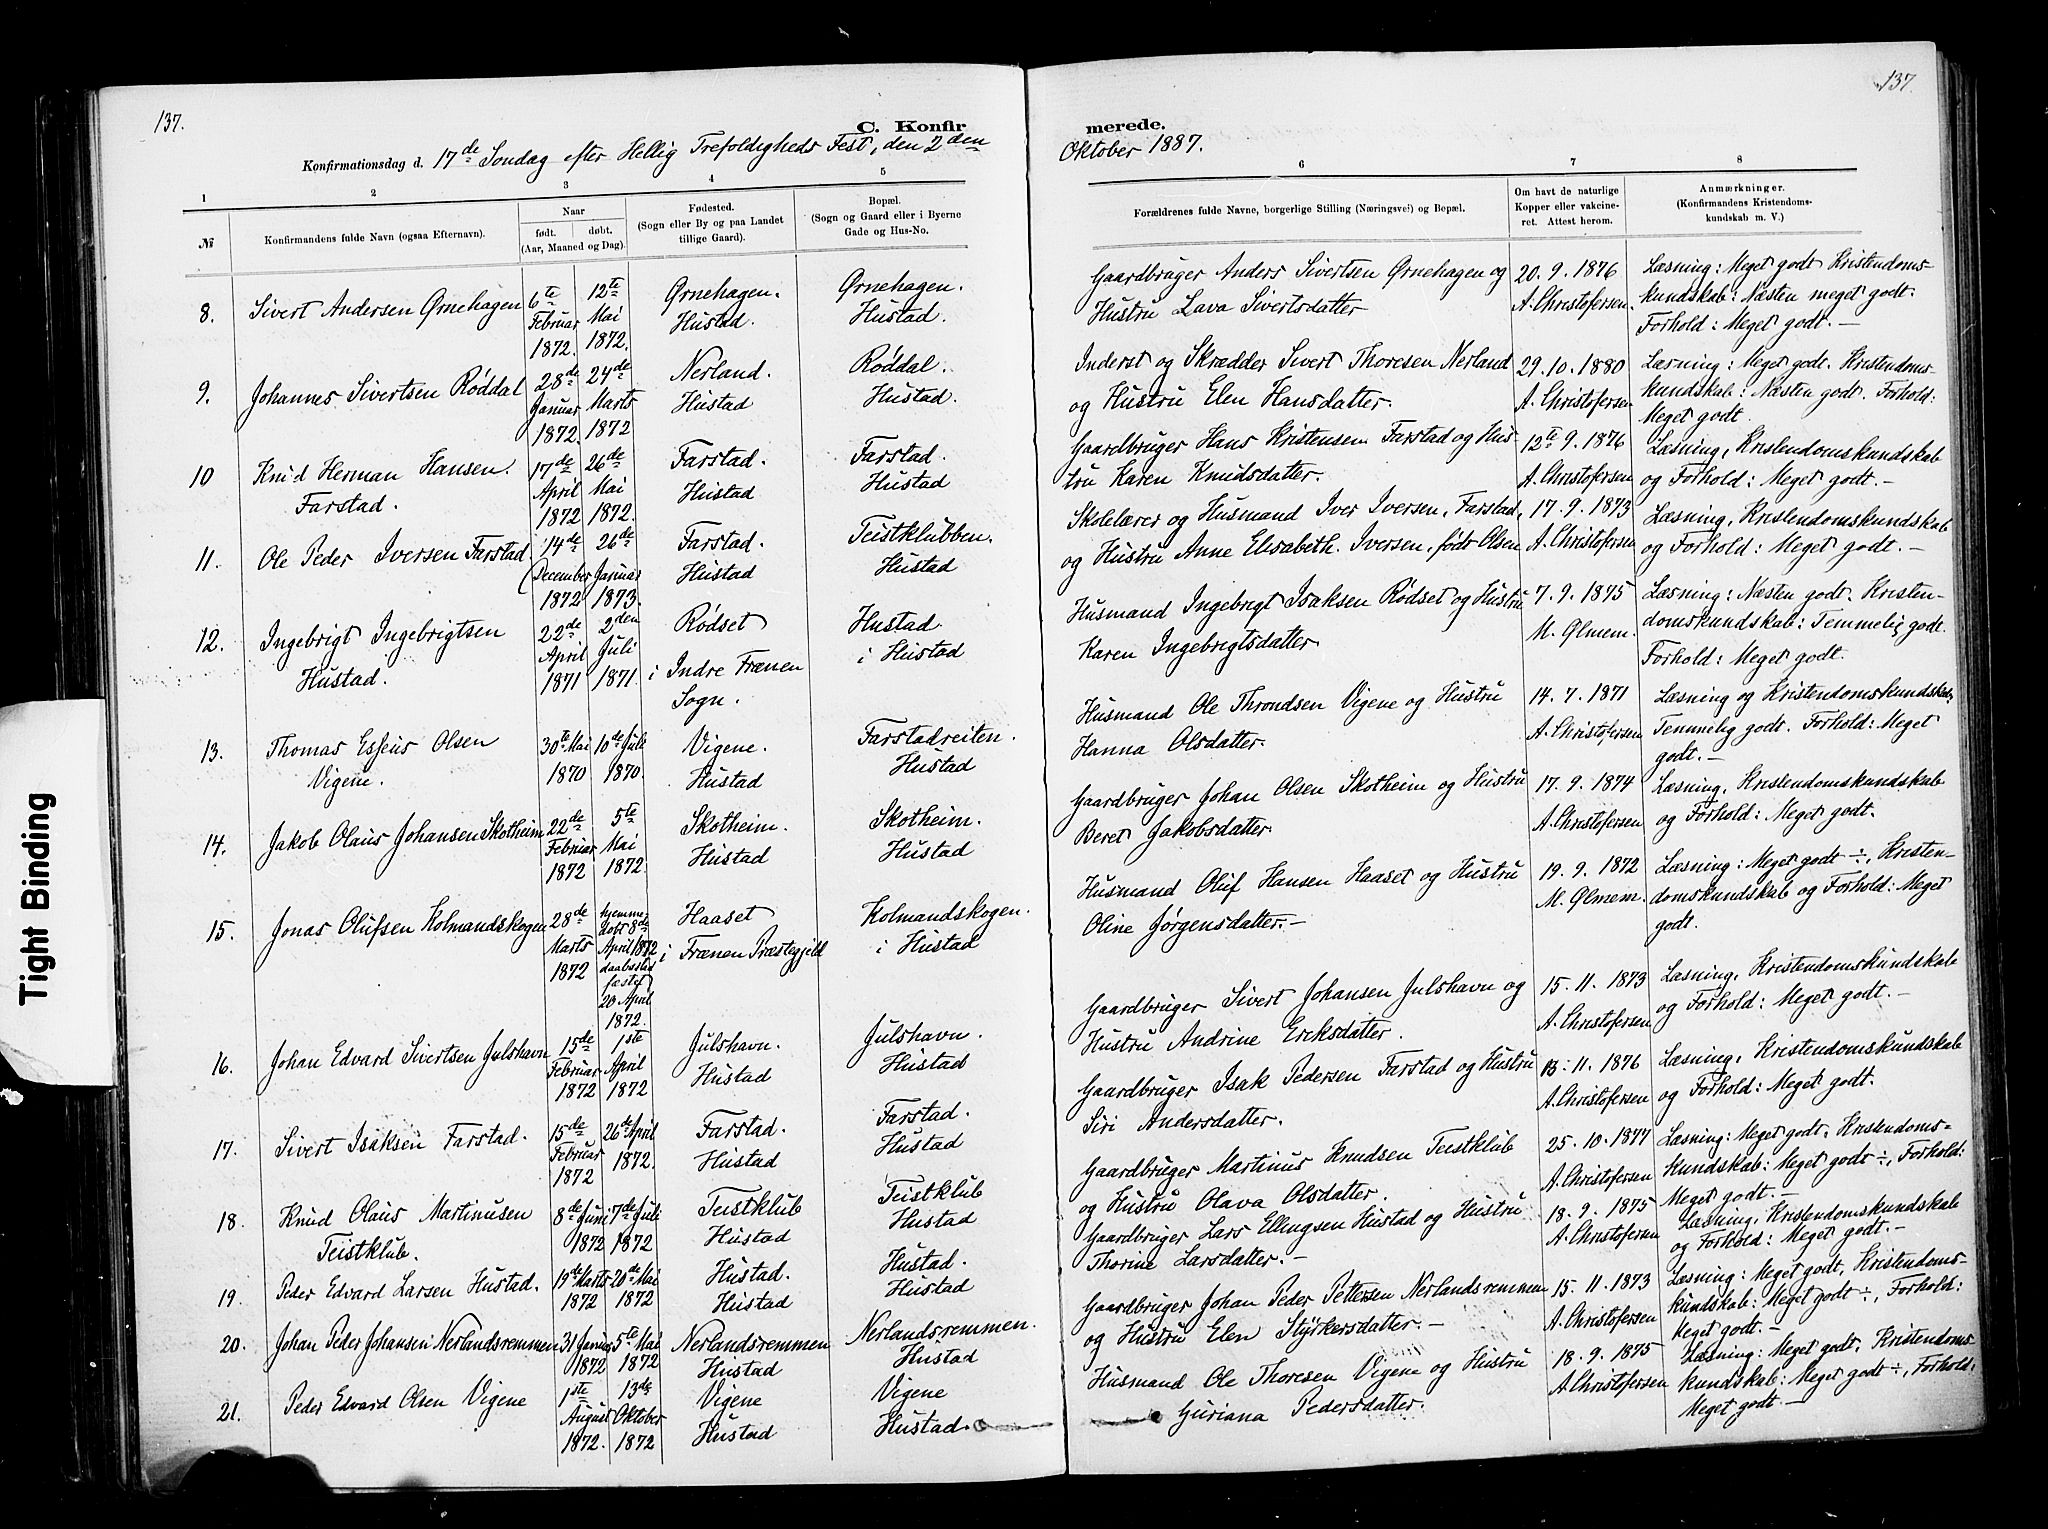 137.
137.
C. Konfir
merede.
Konfirmationsdag d. 17de Søndag efter Hellig Trefoldigheds Fest, den 2den
Oktober 1887.
1
2
3
4
5
6
7
8
№
Konfirmandens fulde Navn (ogsaa Efternavn).
Naar
født. døbt.
(Aar, Maaned og Dag).
Fødested.
(Sogn eller By og paa Landet
tillige Gaard).
Bopæl.
(Sogn og Gaard eller i Byerne
Gade og Hus-No.
Forældrenes fulde Navne, borgerlige Stilling (Næringsvei) og Bopæl.
Om havt de naturlige
Kopper eller vakcine-
ret. Attest herom.
Anmærkninger.
(Konfirmandens Kristendoms-
kundskab m. V.)
8.
Sivert Andersen Ørnehagen
6te
Februar
1872.
12te
Mai
1872.
Ørnehagen.
Hustad.
Ørnehagen.
Hustad.
Gaardbruger Anders Sivertsen Ørnehagen og
Hustru Lava Sivertsdatter
20. 9. 1876
A. Christofersen.
Læsning: Meget godt Kristendoms-
kundskab: Næsten meget godt.
Forhold: Meget godt. —
9.
Johannes Sivertsen Røddal
28de
Januar
1872.
24de
Marts
1872
Nerland.
Hustad
Røddal.
Hustad.
Inderst og Skrædder Sivert Thoresen Nerland
og Hustru Elen Hansdatter.
29. 10. 1880
A. Christofersen
Læsning: Meget godt. Kristendoms-
kundskab: Næsten godt. Forhold:
Meget godt.
10
Knud Herman Hansen.
Farstad.
17de
April
1872
26de
Mai
1872.
Farstad.
Hustad
Farstad.
Hustad
Gaardbruger Hans Kristensen Farstad og Hus-
tru Karen Knudsdatter.
12te 9. 1876
A. Christofersen
Læsning, Kristendomskundskab
og Forhold: Meget godt. —
11.
Ole Peder Iversen Farstad
14de
December
1872
26de
Januar
1873.
Farstad.
Hustad
Teistklubben.
Hustad
Skolelærer og Husmand Iver Iversen, Farstad,
og Hustru Anne Elisabeth. Iversen, født Olsen
17. 9. 1873
A. Christofersen
Læsning, Kristendomskundskab
og Forhold: Meget godt. —
12.
Ingebrigt Ingebrigtsen
Hustad.
22de
April
1871
2den
Juli
1871.
Rødset
i Indre Frænen
Sogn.
Hustad
i Hustad
Husmand Ingebrigt Isaksen Rødset og Hustru
Karen Ingebrigtsdatter
7. 9. 1875
M. Glmem.
Læsning: Næsten godt. Kristen-
domskundskab: Temmelig godt.
Forhold: Meget godt.
13.
Thomas Esseus Olsen
Vigene.
30te Mai
1870
10de Juli
1870.
Vigene.
Hustad
Farstadreiten.
Hustad
Husmand Ole Throndsen Vigene og Hustru
Hanna Olsdatter.
14. 7. 1871
A. Christofersen
Læsning og Kristendomskundskab:
Temmelig godt. Forhold: Meget
godt. —
14.
Jakob Olaus Johansen Skotheim
22de
Februar
1872
5te
Mai
1872.
Skotheim.
Hustad
Skotheim.
Hustad
Gaardbruger Johan Olsen Skotheim og Hustru
Beret Jakobsdatter.
17. 9. 1874
A. Christofersen
Læsning, Kristendomskundskab
og Forhold: Meget godt.
15.
Jonas Olufsen Kolmandskogen
28de
Marts
1872
hjemme-
døbt 8de
April 1872
daabsstad
fæstet
20 April
1872.
Haaset
i Frænen Præstegjeld
Kolmandskogen.
i Hustad
Husmand Oluf Hansen Haaset og Hustru
Oline Jørgensdatter. —
19. 9. 1872
M. Glmem.
Læsning: Meget godt ÷, Kristen-
domskundskab og Forhold: Meget
godt.
16.
Johan Edvard Sivertsen Julshavn
15de
Februar
1872
1ste
April
1872
Julshavn.
Hustad
Julshavn.
Hustad
Gaardbruger Sivert Johansen Julshavn og
Hustru Andrine Eriksdatter.
15. 11. 1873
A. Christofersen
Læsning, Kristendomskundskab
og Forhold: Meget godt. —
17.
Sivert Isaksen Farstad.
15de
Februar
1872
26de April
1872.
Farstad.
Hustad
Farstad.
Hustad
Gaardbruger Isak Pedersen Farstad og Hustru
Siri Andersdatter.
13. 11. 1876
A. Christofersen
Læsning, Kristendomskundskab
og Forhold: Meget godt.
18.
Knud Olaus Martinusen
Teistklub.
8de Juni
1872
7de Juli
1872
Teistklub
Hustad
Teistklub
Hustad
Gaardbruger Martinus Knudsen Teistklub
og Hustru Olava Olsdatter.
25. 10. 1877
A. Christofersen
Læsning: Meget godt, Kristendoms-
kundskab: Meget godt ÷, Forhold:
Meget godt. —
19.
Peder Edvard Larsen Hustad.
19de Marts
1872
20de Mai
1872
Hustad.
Hustad
Hustad.
Hustad
Gaardbruger Lars Ellingsen Hustad og Hustru
Thorine Larsdatter. —
18. 9. 1875
A. Christofersen
Læsning, Kristendomskundskab
og Forhold: Meget godt. —
20.
Johan Peder Johansen Nerlandsremmen
31 Januar
1872
5te Mai
1872
Nerlandsremmen
Hustad
Nerlandsremmen.
Hustad
Gaardbruger Johan Peder Pettersen Nerlandsremmen
og Hustru Elen Styrkersdatter. —
15. 11. 1873
A. Christofersen
Læsning: Meget godt, Kristendoms-
kundskab: Meget godt ÷, Forhold:
Meget godt. —
21.
Peder Edvard Olsen Vigene
1ste
August
1872.
13de
Oktober
1872
Vigene
Hustad
Vigene
Hustad.
Husmand Ole Thoresen Vigene og Hustru
Guriana Pedersdatter.
18. 9. 1875
A. Christofersen
Læsning: Meget godt, Kristendoms-
kundskab: Meget godt ÷, Forhold:
Meget godt. —
Tight Binding